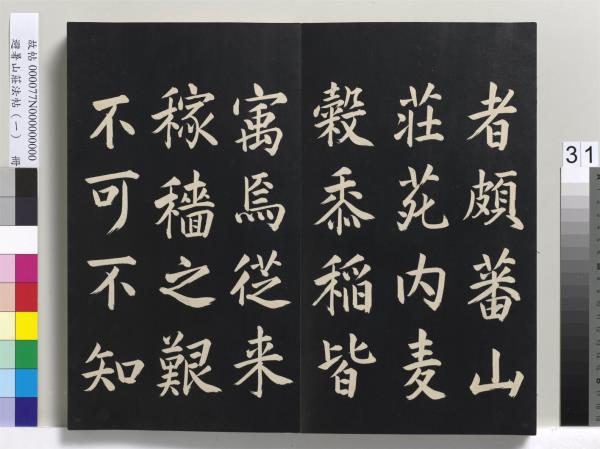 者頗蕃山
莊苑内麦
穀黍稻皆
寓焉從来
稼穡之艱
不可不知
故帖 000077N000000000
避暑山莊法帖（一） 冊
31